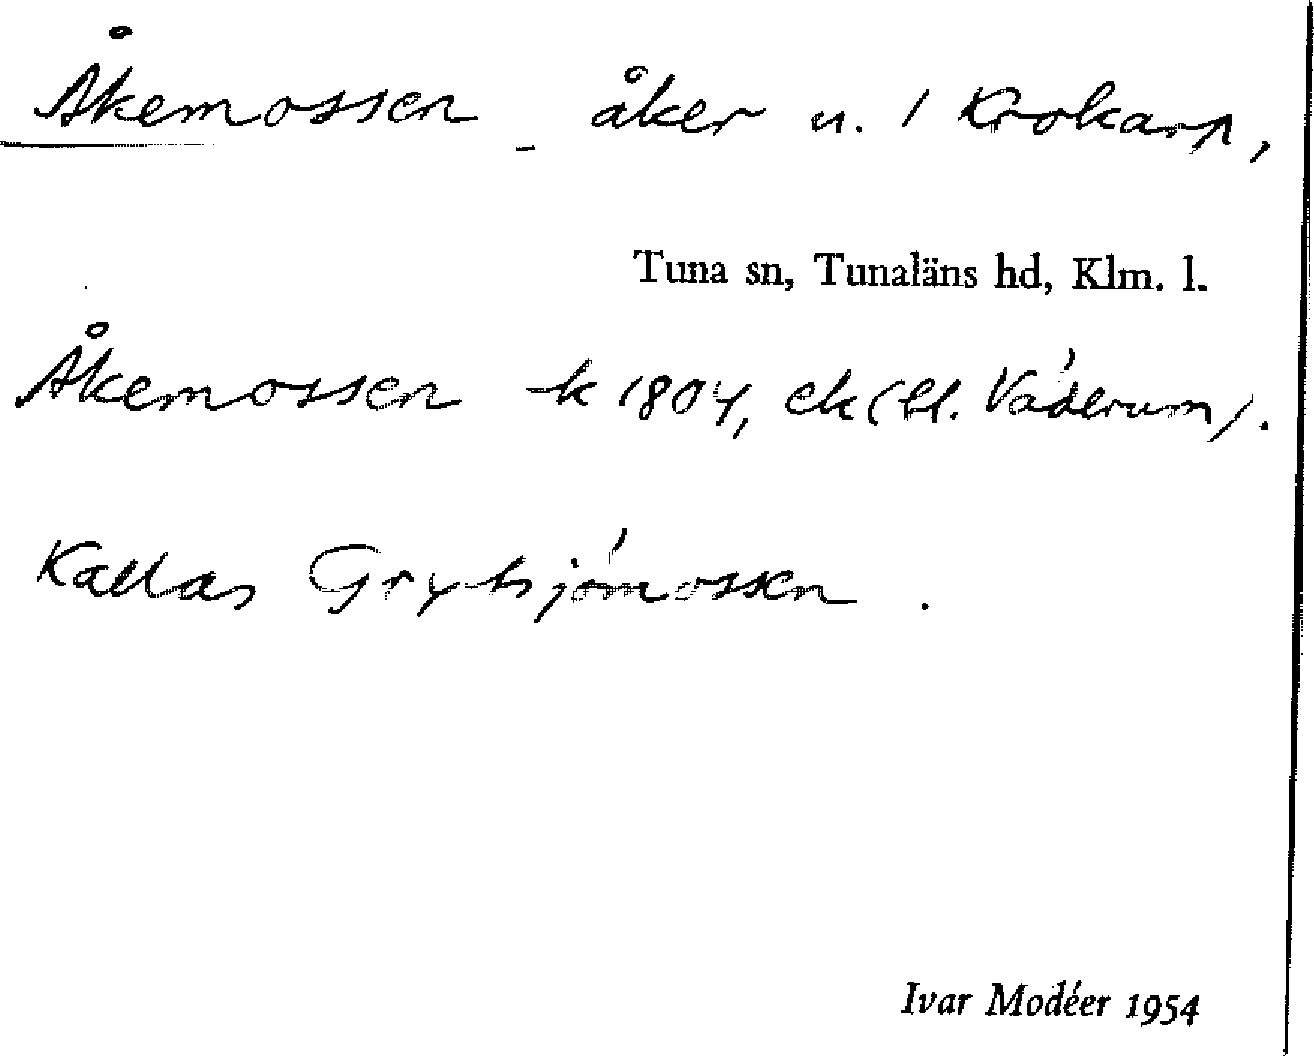 Åkemossen åker u. 1 Krokarp,
Tuna sn, Tunaläns hd, Klm. l.
Åkemossen k 1804, ek (bl. Väderum).
Kallas Grytsjömossen.
Ivar Modéer 1954